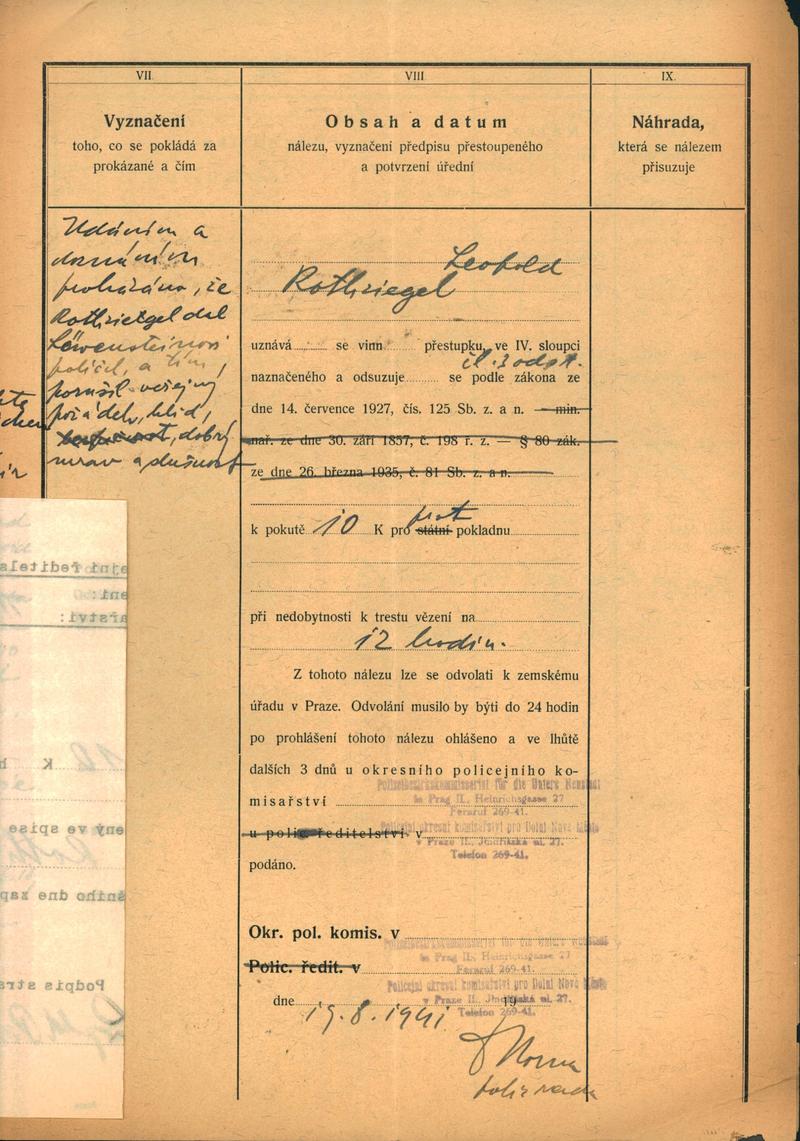 VII.
Vyznačení
toho, co se pokládá za
prokázané a čím
Udáním a
doznáním
prokázáno, že
Rothziegel dal
Löwensteinovi
políček, a tím
porušil veřejný
pořádek, klid,
bezpečnost, dobrý
mrav a slušnost
VIII.
Obsah a datum
nálezu, vyznačení předpisu přestoupeného
a potvrzení úřední
Leopold
Rothziegel
uznává se vinn přestupku, ve IV. sloupci
čl. 3 odst.
naznačeného a odsuzuje se podle zákona ze
dne 14. července 1927, čís. 125 Sb. z. a n. — min.
nař. ze dne 30. září 1857, č. 198 ř. z. — § 80 zák.
ze dne 26. března 1935, č. 81 Sb. z. a n.
k pokutě 10 K pro státní prot pokladnu
při nedobytnosti k trestu vězení na
12 hodin.
Z tohoto nálezu lze se odvolati k zemskému
úřadu v Praze. Odvolání musilo by býti do 24 hodin
po prohlášení tohoto nálezu ohlášeno a ve lhůtě
dalších 3 dnů u okresního policejního ko-
Polizeibezirkskommissariat für die Untere Neustadt
misařství
in Prag II., Heinrichsgasse 27
Fernruf 269-41.
Policejní okresní komisařství pro Dolní Nové Město
u polic. ředitelství v
v Praze II., Jindřišská ul. 27.
Telefon 269-41.
podáno.
Okr. pol. komis. v
Polizeibezirkskommissariat für die Untere Neustadt
in Prag II., Heinrichsgasse 27
Polic. ředit. v
Fernruf 269-41.
Policejní okresní komisařství pro Dolní Nové Město
dne 19
v Praze II., Jindřišská ul. 27.
Telefon 269-41.
19.8.1941
pol. rada
IX.
Náhrada,
která se nálezem
přisuzuje